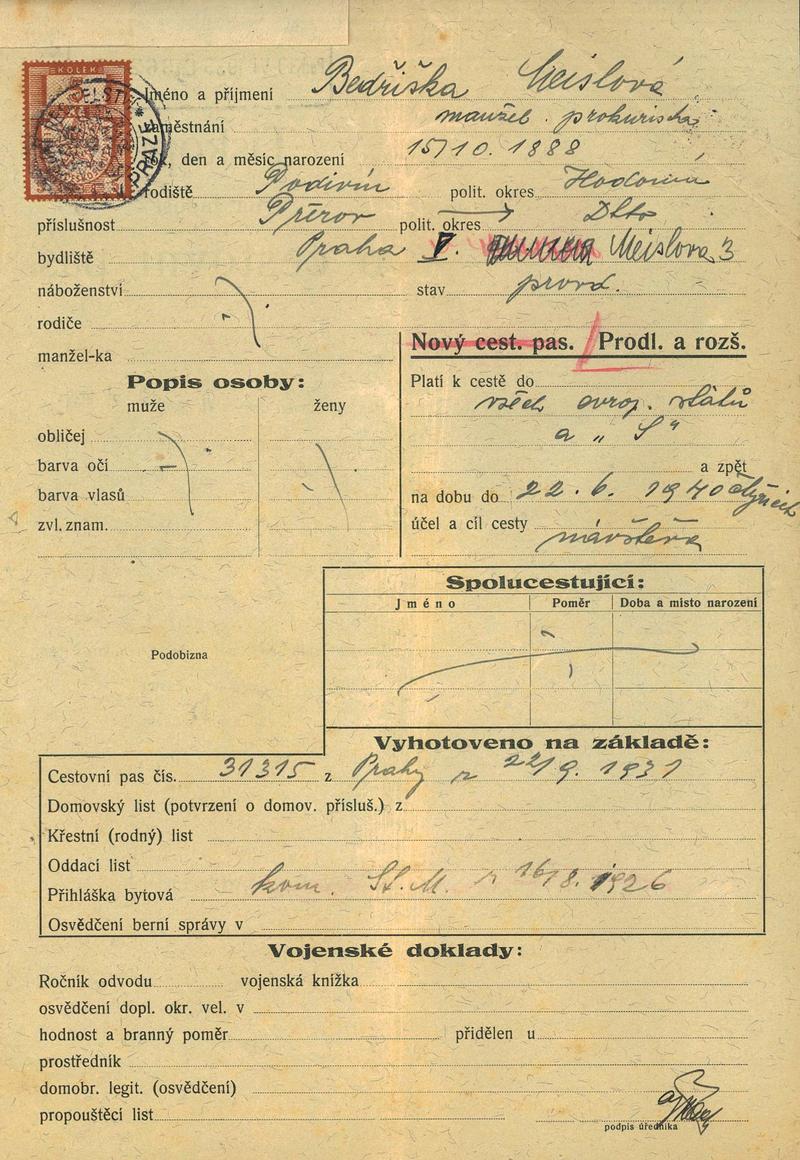 KOLEK
ŘEDITELSTVÍ
PRAZE
Jméno a příjmení Bedřiška Meislová
zaměstnání manžel. prokuristka
rok, den a měsíc narození 15/10. 1888
rodiště Podivín polit. okres Hodonín
příslušnost Přerov polit. okres Dtto
bydliště Praha V. Meislova 3
náboženství stav provd.
rodiče
manžel-ka
Nový cest. pas. Prodl. a rozš.
Popis osoby:
muže ženy
obličej
barva očí
barva vlasů
zvl. znam.
Platí k cestě do
všech evrop. států
a „S"
a zpět
na dobu do 22. 6. 1940
účel a cíl cesty návštěva
Spolucestující:
Jméno Poměr Doba a místo narození
Podobizna
Vyhotoveno na základě:
Cestovní pas čís. 31315 z Prahy z 22/9. 1931
Domovský list (potvrzení o domov. přísluš.) z
Křestní (rodný) list
Oddací list
Přihláška bytová kom. St. M. z 16/8. 1926
Osvědčení berní správy v
Vojenské doklady:
Ročník odvodu vojenská knížka
osvědčení dopl. okr. vel. v
hodnost a branný poměr přidělen u
prostředník
domobr. legit. (osvědčení)
propouštěcí list
podpis úředníka